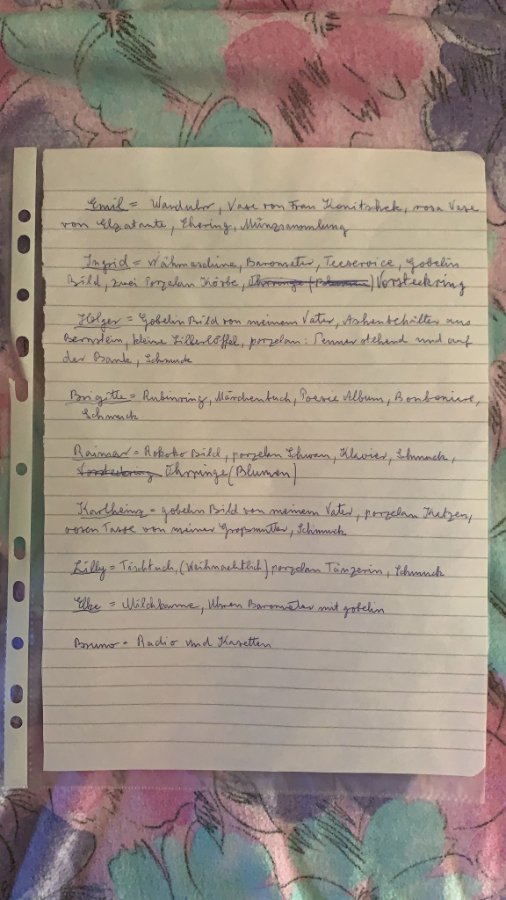 Emil = Wanduhr, Vase von Frau Konitshek, rosa Vase
von Elzatante, Ehering, Münzsammlung
Ingrid = Nähmaschine, Barometer, Teeservice, Gobelin
Bild, zwei Porzelan Körbe, Ohrringe (Blumen) Vorsteckring
Holger = Gobelin Bild von meinem Vater, Ashenbehälter aus
Bernstein, kleine Sillerlöffel, porzelan: Penner stehend und auf
der Bank, Schmuck
Brigitte = Rubinring, Märchenbuch, Poesie Album, Bonboniere,
Schmuck
Raimar = Rokoko Bild, porzelan Schwan, Klavier, Schmuck,
Vorsteckring Ohrringe (Blumen)
Karlheinz = gobelin Bild von meinem Vater, porzelan Katzen,
rosen Tasse von meiner Großmutter, Schmuck
Lilly = Tischtuch, (Weihnachtlich) porzelan Tänzerin, Schmuck
Elke = Milchkanne, Uhren Barometer mit gobelin
Bruno = Radio und Kasetten